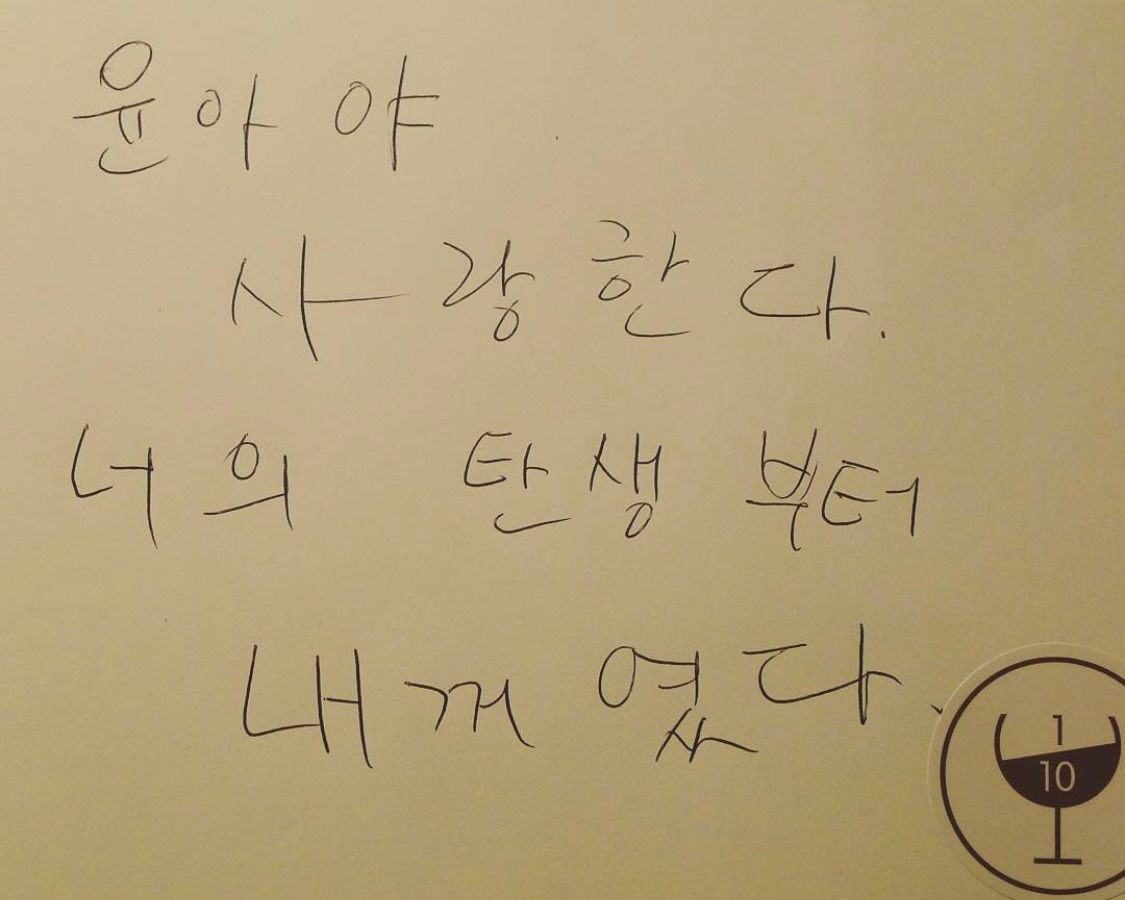 윤아야
사랑한다.
너의 탄생부터
내꺼였다.
1
10